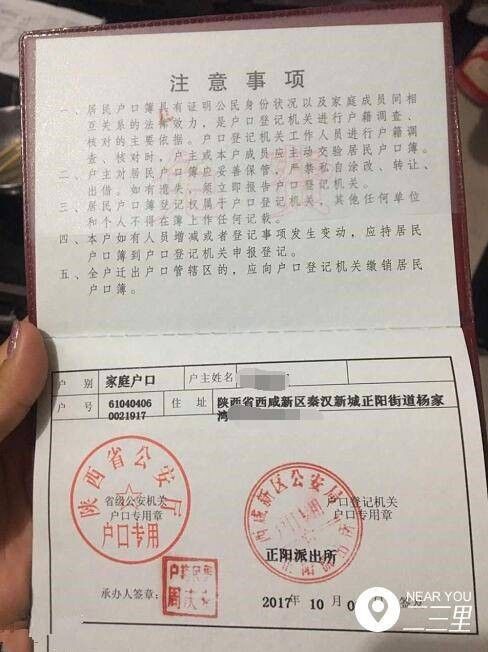 注意事项
一、居民户口簿具有证明公民身份状况以及家庭成员间相
互关系的法律效力，是户口登记机关进行户籍调查、核
对的主要依据。户口登记机关工作人员进行户籍调
查、核对时，户主或本户成员应主动交验居民户口簿。
二、户主对居民户口簿应妥善保管，严禁私自涂改、转让、
出借。如有遗失，须立即报告户口登记机关。
三、居民户口簿登记权属于户口登记机关，其他任何单位
和个人不得在簿上作任何记载。
四、本户如有人员增减或者登记事项发生变动，应持居民
户口簿到户口登记机关申报登记。
五、全户迁出户口管辖区的，应向户口登记机关缴销居民
户口簿。
户别 家庭户口 户主姓名
户号 61040406 住址 陕西省西咸新区秦汉新城正阳街道杨家
0021917 湾
陕西省公安厅
省级公安机关
户口专用章
户口专用
西咸新区公安局
户口登记机关
户口专用章
正阳派出所
承办人签章：
2017年 10月 0
NEAR YOU
二三里